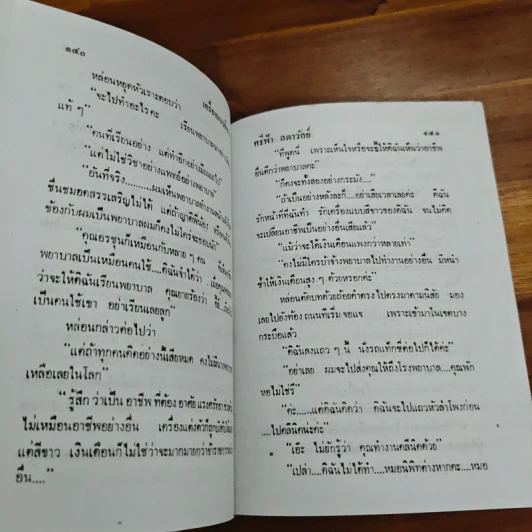 ๑๔๐
หล่อนหยุดหัวเราะตอบว่า
"จะไปทำอะไรคะ เรียนพยาบาล
แท้ ๆ"
"คนที่เรียนอย่าง แต่ทำอีกอย่าง
"แต่ไม่ใช่วิชาอย่างแพทย์อย่างพยาบาล"
"อันที่จริง.........ผมเห็นพยาบาล
ชื่นชมอดสรรเสริญไม่ได้ แต่ถ้าญาติพี่น้อง
ข้องกับผมเป็นพยาบาลผมก็คงไม่ใคร่จะชอบนัก"
"คุณอรชุนก็เหมือนกับหลาย ๆ คน
พยาบาลเป็นเหมือนคนใช้....ดิฉันจำได้ว่า
ว่าจะให้ดิฉันเรียนพยาบาล คุณยายร้องว่า
เป็นคนใช้เขา อย่าเรียนเลยลูก"
หล่อนกล่าวต่อไปว่า
"แต่ถ้าทุกคนคิดอย่างนี้เสียหมด
เหลือเลยในโลก"
"รู้สึกว่าเป็นอาชีพที่ต้องอาศัย
ไม่เหมือนอาชีพอย่างอื่น เครื่องแต่งตัวก็
แค่สีขาว เงินเดือนก็ไม่ใช่ว่าจะมากมายกว่า
อื่น...."
ศรีฟ้า ลดาวัลย์ ๑๔๑
"ที่พูดนี่ เพราะเห็นใจหรือจะชี้ให้ดิฉันเห็นว่าอาชีพ
อื่นดีกว่าพยาบาลคะ"
"ก็คงจะทั้งสองอย่างกระมัง...."
"ถ้าเป็นอย่างหลังละก็....อย่าเสียเวลาเลยค่ะ ดิฉัน
รักหน้าที่ที่ฉันทำ รักเครื่องแบบสีขาวของดิฉัน จนไม่คิด
จะเปลี่ยนอาชีพเป็นอย่างอื่นเสียแล้ว"
"แม้ว่าจะได้เงินเดือนแพงกว่าหลายเท่า"
"คงไม่มีใครบ้าจ้างพยาบาลไปทำงานอย่างอื่น มีหน้า
ซ้ำให้เงินเดือนสูง ๆ ด้วยหรอกค่ะ"
หล่อนตัดบทด้วยถ้อยคำตรงไปตรงมาตามนิสัย มอง
เลยไปยังท้องถนนที่เริ่มจอแจ เพราะเข้ามาในเขตบาง
กระบือแล้ว
"ดิฉันลงแถว ๆ นี้ นั่งรถแท็กซี่ต่อไปก็ได้ค่ะ"
"อย่าเลย ผมจะไปส่งคุณให้ถึงโรงพยาบาล....คุณพัก
หอไม่ใช่รึ"
"ค่ะ.....แต่ดิฉันคิดว่า ดิฉันจะไปแถวหัวลำโพงก่อน
....ไปคลินิคน่ะค่ะ"
"เอ๊ะ ไม่ยักรู้ว่า คุณทำงานคลินิคด้วย"
"เปล่า....ดิฉันไม่ได้ทำ....หมอนิพิทต่างหากคะ....หมอ